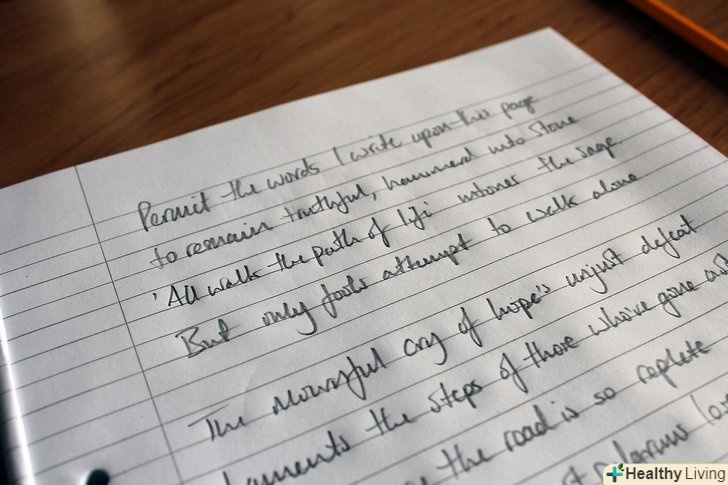 Permit the words I write upon this page
to remain truthful, hammered into Stone
'All walk the path of life' intones the sage.
But only fools attempt to walk alone
The mournful cry of hope's unjust defeat
laments the steps of those who've gone
the road is so replete
Healthy Living